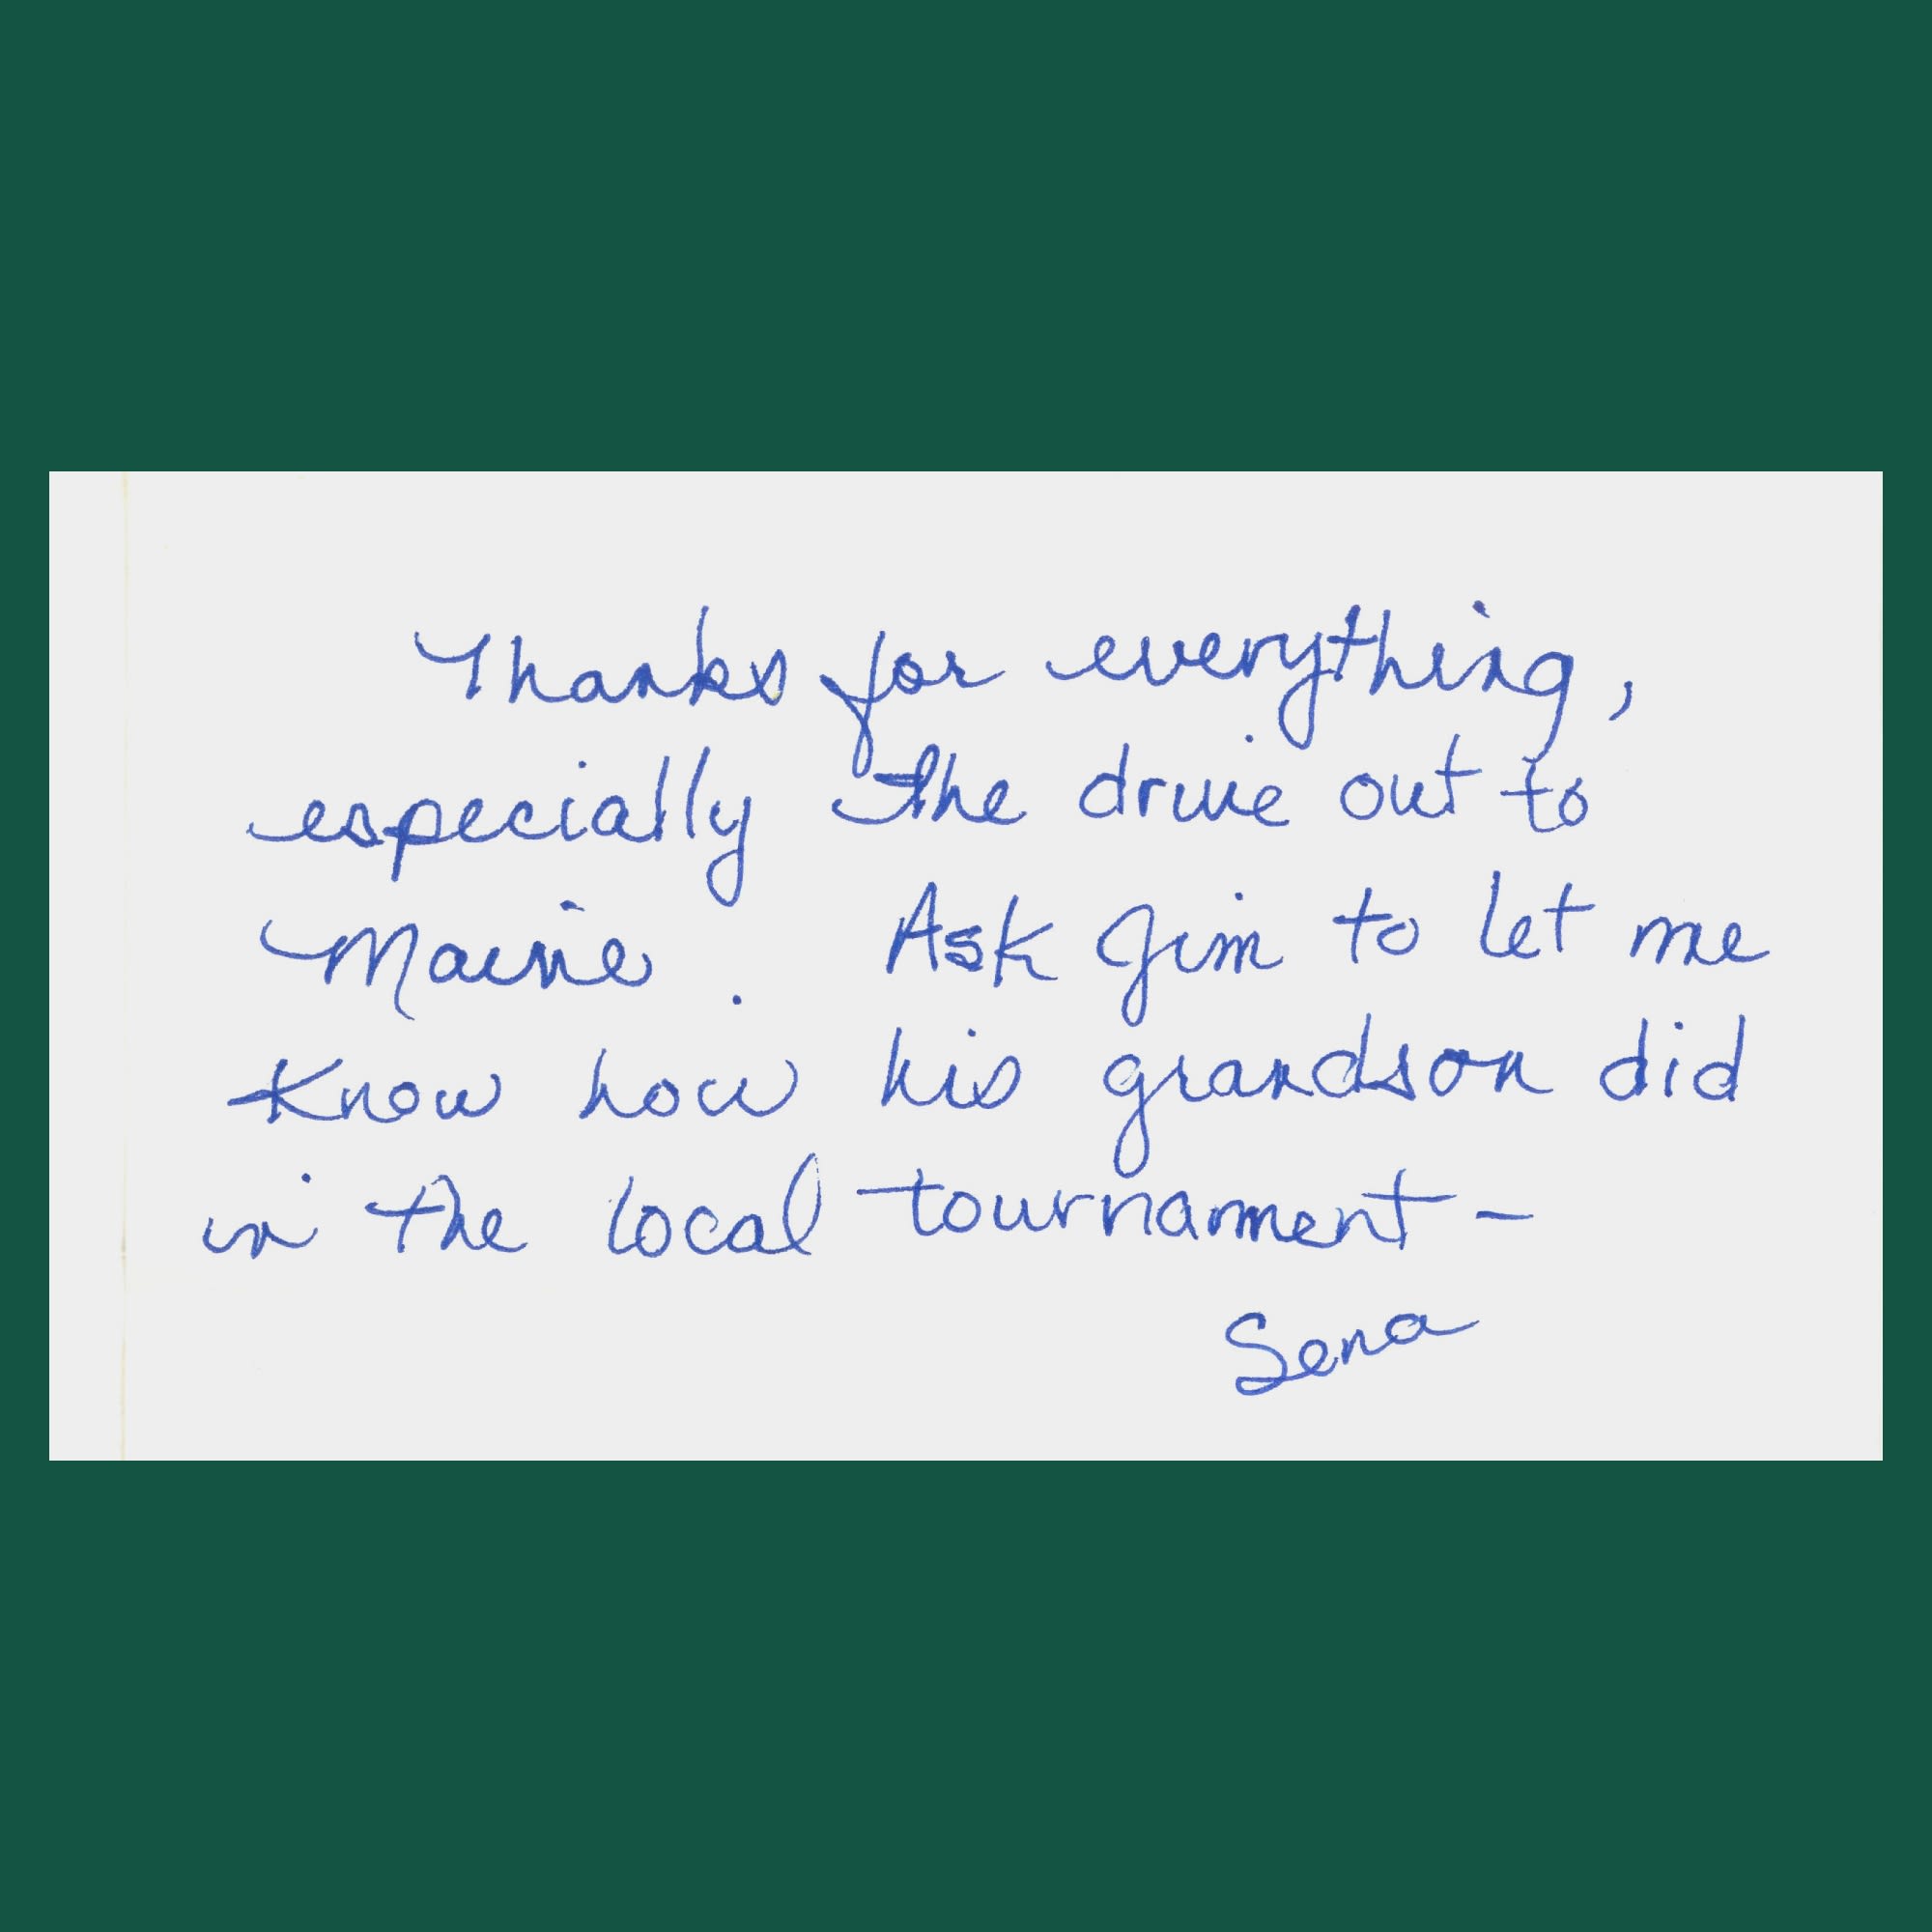 Thanks for everything,
especially the drive out to
Maine. Ask Jim to let me
know how his grandson did
in the local tournament-
Sena